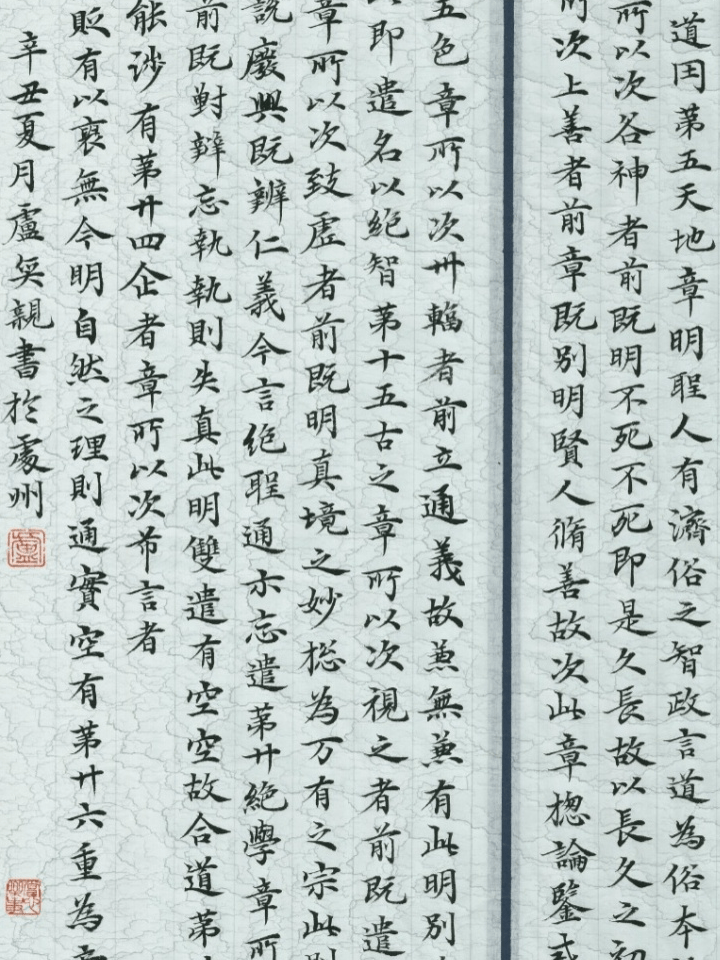 道因第五天地章明聖人有濟俗之智政言道為俗本
所以次谷神者前既明不死不死即是久長故以長久之初
次上善者前章既別明賢人脩善故次此章揔論鑒
五色章所以次卅輻者前立通義故兼無兼有此明別
即遣名以絕智第十五古之章所以次視之者前既遣
章所以次致虛者前既明真境之妙揔為万有之宗此別
說廢興既辨仁義今言絕聖通亦忘遣第廿絕學章所
前既對辯忘執執則失真此明雙遣有空空故合道第
能涉有第廿四企者章所以次希言者
貶有以褒無今明自然之理則通實空有第廿六重為
辛丑夏月盧奐親書於處州
盧